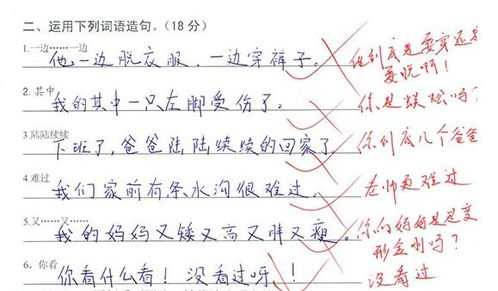 二、运用下列词语造句。(18分)
1.一边……一边
他一边脱衣服,一边穿裤子。
他到底是要穿还是
要脱啊!
2.其中
我的其中一只左脚受伤了。
你是蜈蚣吗?
3.陆陆续续
下班了,爸爸陆陆续续的回家了
你到底几个爸爸
4.难过
我们家前有条水沟很难过。
老师更难过
5.又……又……
我的妈妈又矮又高又胖又瘦。
你的妈妈是是变
形金刚吗?
6、你看
你看什么看!没看过呀!!
没看过